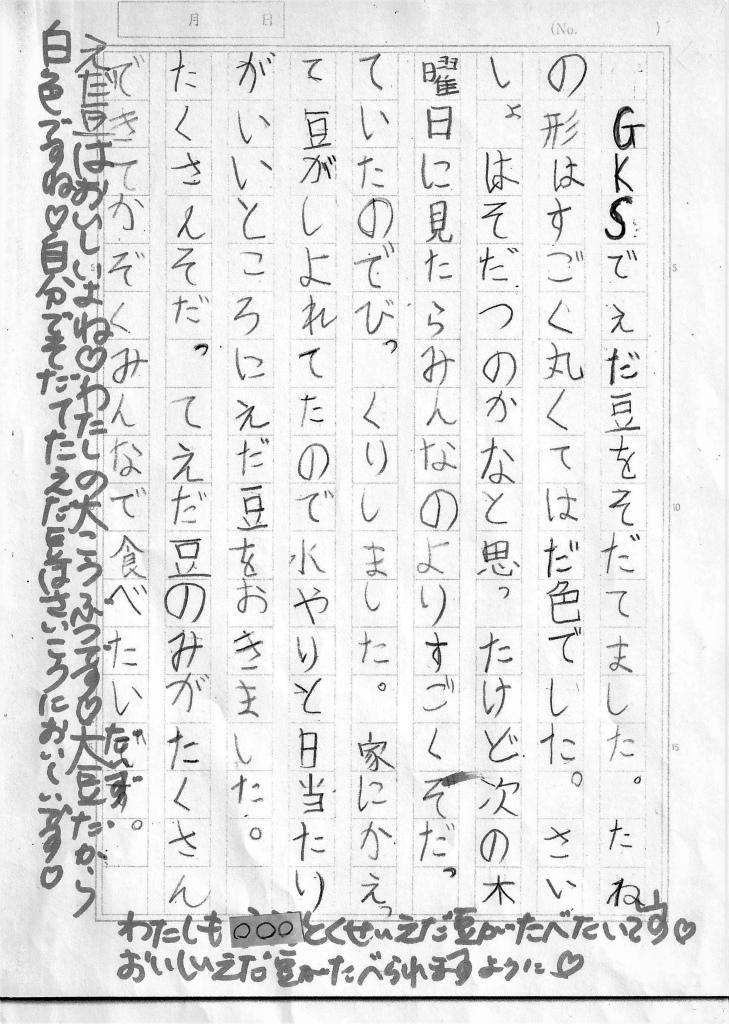 月　日
(No.　)
GKSでえだ豆をそだてました。たね
の形はすごく丸くてはだ色でした。さい
しょはそだつのかなと思ったけど次の木
曜日に見たらみんなのよりすごくそだっ
ていたのでびっくりしました。家にかえっ
て豆がしよれてたので水やりと日当たり
がいいところにえだ豆をおきました。
たくさんそだってえだ豆のみがたくさん
できてかぞくみんなで食べたいです。
5
10
15
えだ豆はおいしいよね♡わたしの大こうぶつです♡大豆だから
白色ですね♡自分でそだてたえだ豆はさいこうにおいしいです♡
わたしも○○○とくせいえだ豆がたべたいです♡
おいしいえだ豆がたべられますように♡